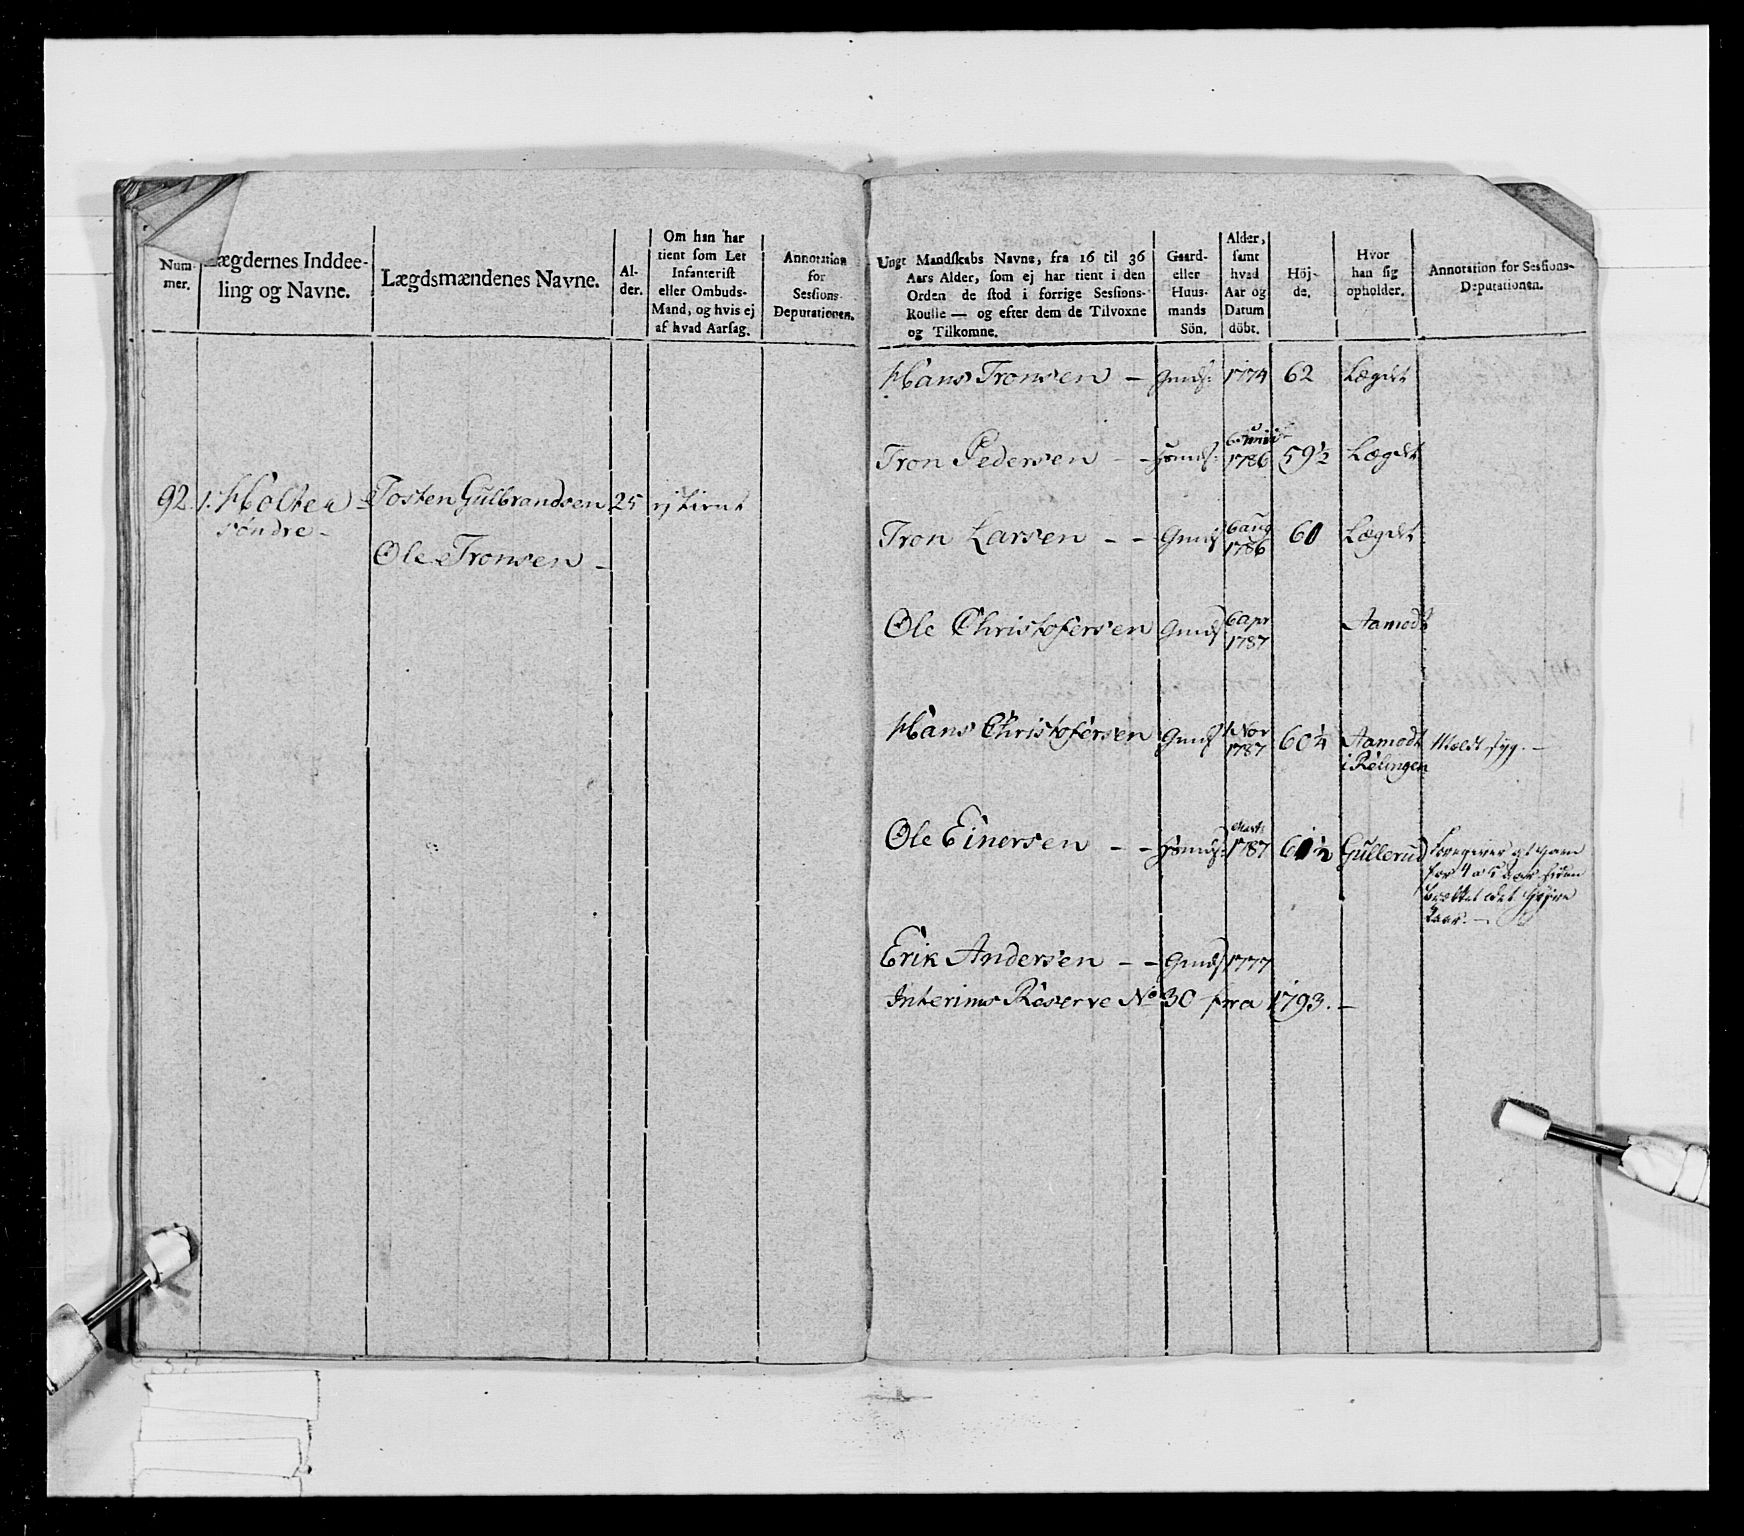 Num-
mer.
Lægdernes Inddee-
ling og Navne.
Lægdsmændenes Navne.
Al-
der.
Om han har
tient som Let
Infanterist
eller Ombuds-
Mand, og hvis ej
af hvad Aarsag.
Annotation
for
Sessions-
Deputationen.
92. 1. Holter - Tosten Gulbrandsen 25 ej tient
søndre -
Ole Tronsen -
Ungt Mandskabs Navne, fra 16 til 36
Aars Alder, som ej har tient i den
Orden de stod i forrige Sessions-
Roulle — og efter dem de Tilvoxne
og Tilkomne.
Gaard-
eller
Huus-
mands
Sön.
Alder,
samt
hvad
Aar og
Datum
döbt.
Höj-
de.
Hvor
han sig
opholder.
Annotation for Sessions-
Deputationen.
Hans Tronsen - Gmds: 1774 62 Lægdet
6 Junii
Tron Pedersen - - Hsmds: 1786 59½ Lægdt
6 aug
Tron Larsen - - Gmds 1786 60 Lægdet
6 Apr
Ole Christofersen Gmds 1787 Aamodt
1 Nov
Hans Christofersen Gmds 1787 60¼ Aamodt Meldt syg. -
i Rølingen
Marti
Ole Einersen - - Hsmds: 1787 60½ Gullerud Foregiver at have
for 4 a 5 aar siden
brækket det høyre
Laar. -
Erik Andersen - - Gmds 1777
Interims Reserve No 30 fra 1793. -